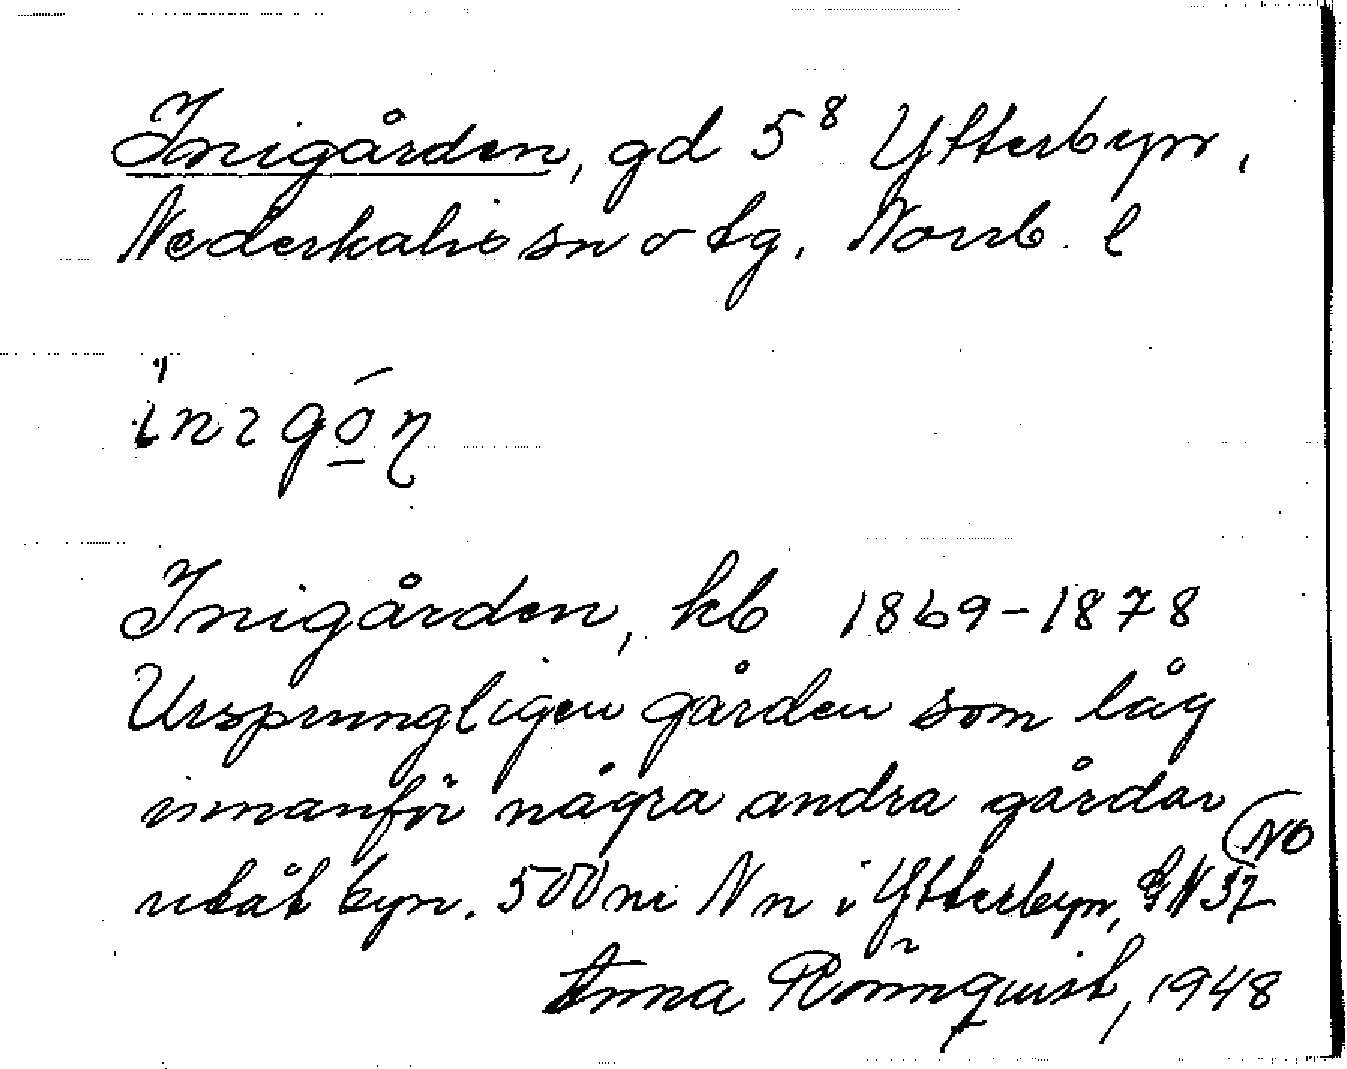 Inigården, gd 5⁸ Ytterbyn,
Nederkalix sn o tg. Norrb. l
inigón
Inigården, kb 1869-1878
Ursprungligen gården som låg
innanför några andra gårdar
utåt byn. 500 m N n i Ytterbyn, NO
Anna Rönnquist, 1948